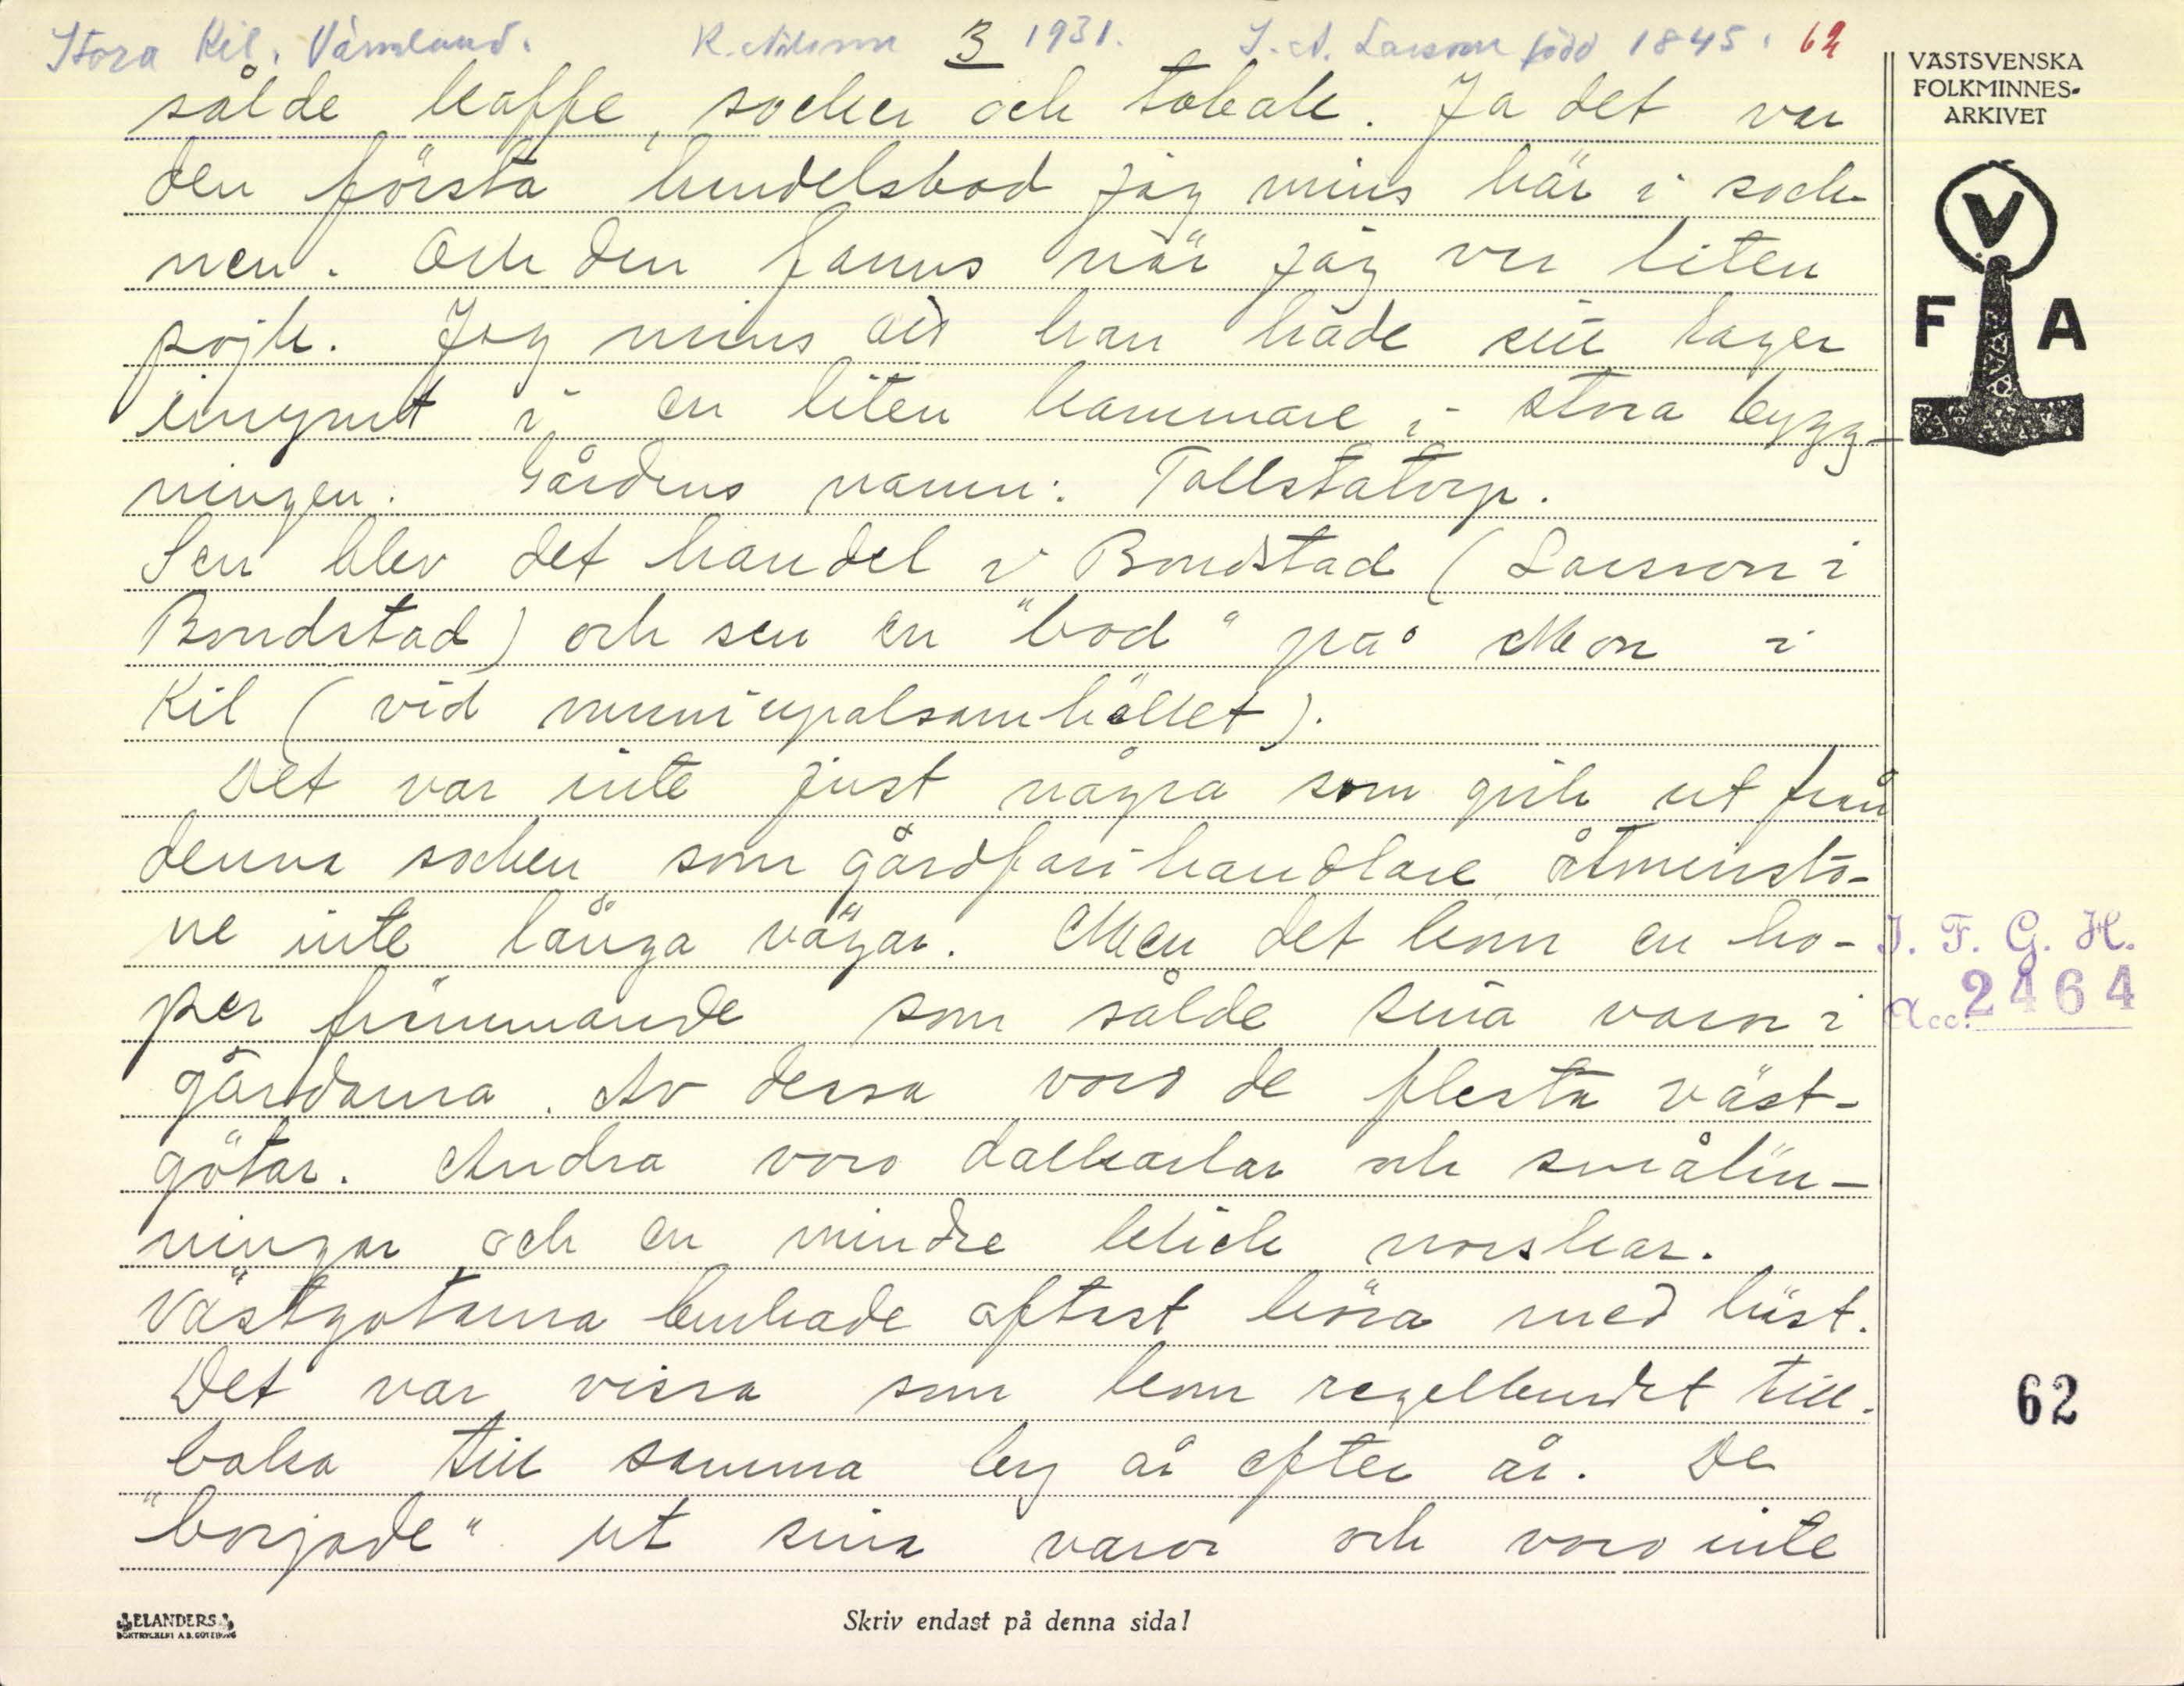 Stora Kil. Värmland. K. Nilsson 3 1931. J. A. Larsson född 1845. 62
sålde kaffe, socker och tobak. Ja det var
den första handelsbod jag mins här i sock-
nen. Och den fanns när jag var liten
pojk. Jag mins att han hade sitt lager
inrymt i en liten kammare i stora bygg-
ningen. Gårdens namn: Tollstatorp.
Sen blev det handel i Bondstad (Larsson i
Bondstad) och sen en "bod" på Mon i
Kil (vid municipalsamhället).
Det var inte just några som gick ut från
denna socken som gårdfarihandlare åtminsto-
ne inte långa vägar. Men det kom en ho-
per främmande som sålde sina varor i
gårdarna. Av dessa voro de flesta väst-
götar. Andra voro dalkarlar och smålän-
ningar och en mindre bråck norskar.
Västgötarna brukade oftast köra med häst.
Det var vissa som kom regelbundet till-
baka till samma by år efter år. De
"borjade" ut sina varor och voro inte
VÄSTSVENSKA
FOLKMINNES-
ARKIVET
V
F A
I. F. G. H.
Acc. 2464
62
ELANDERS
BOKTRYCKERI A.B. GÖTEBORG
Skriv endast på denna sida!